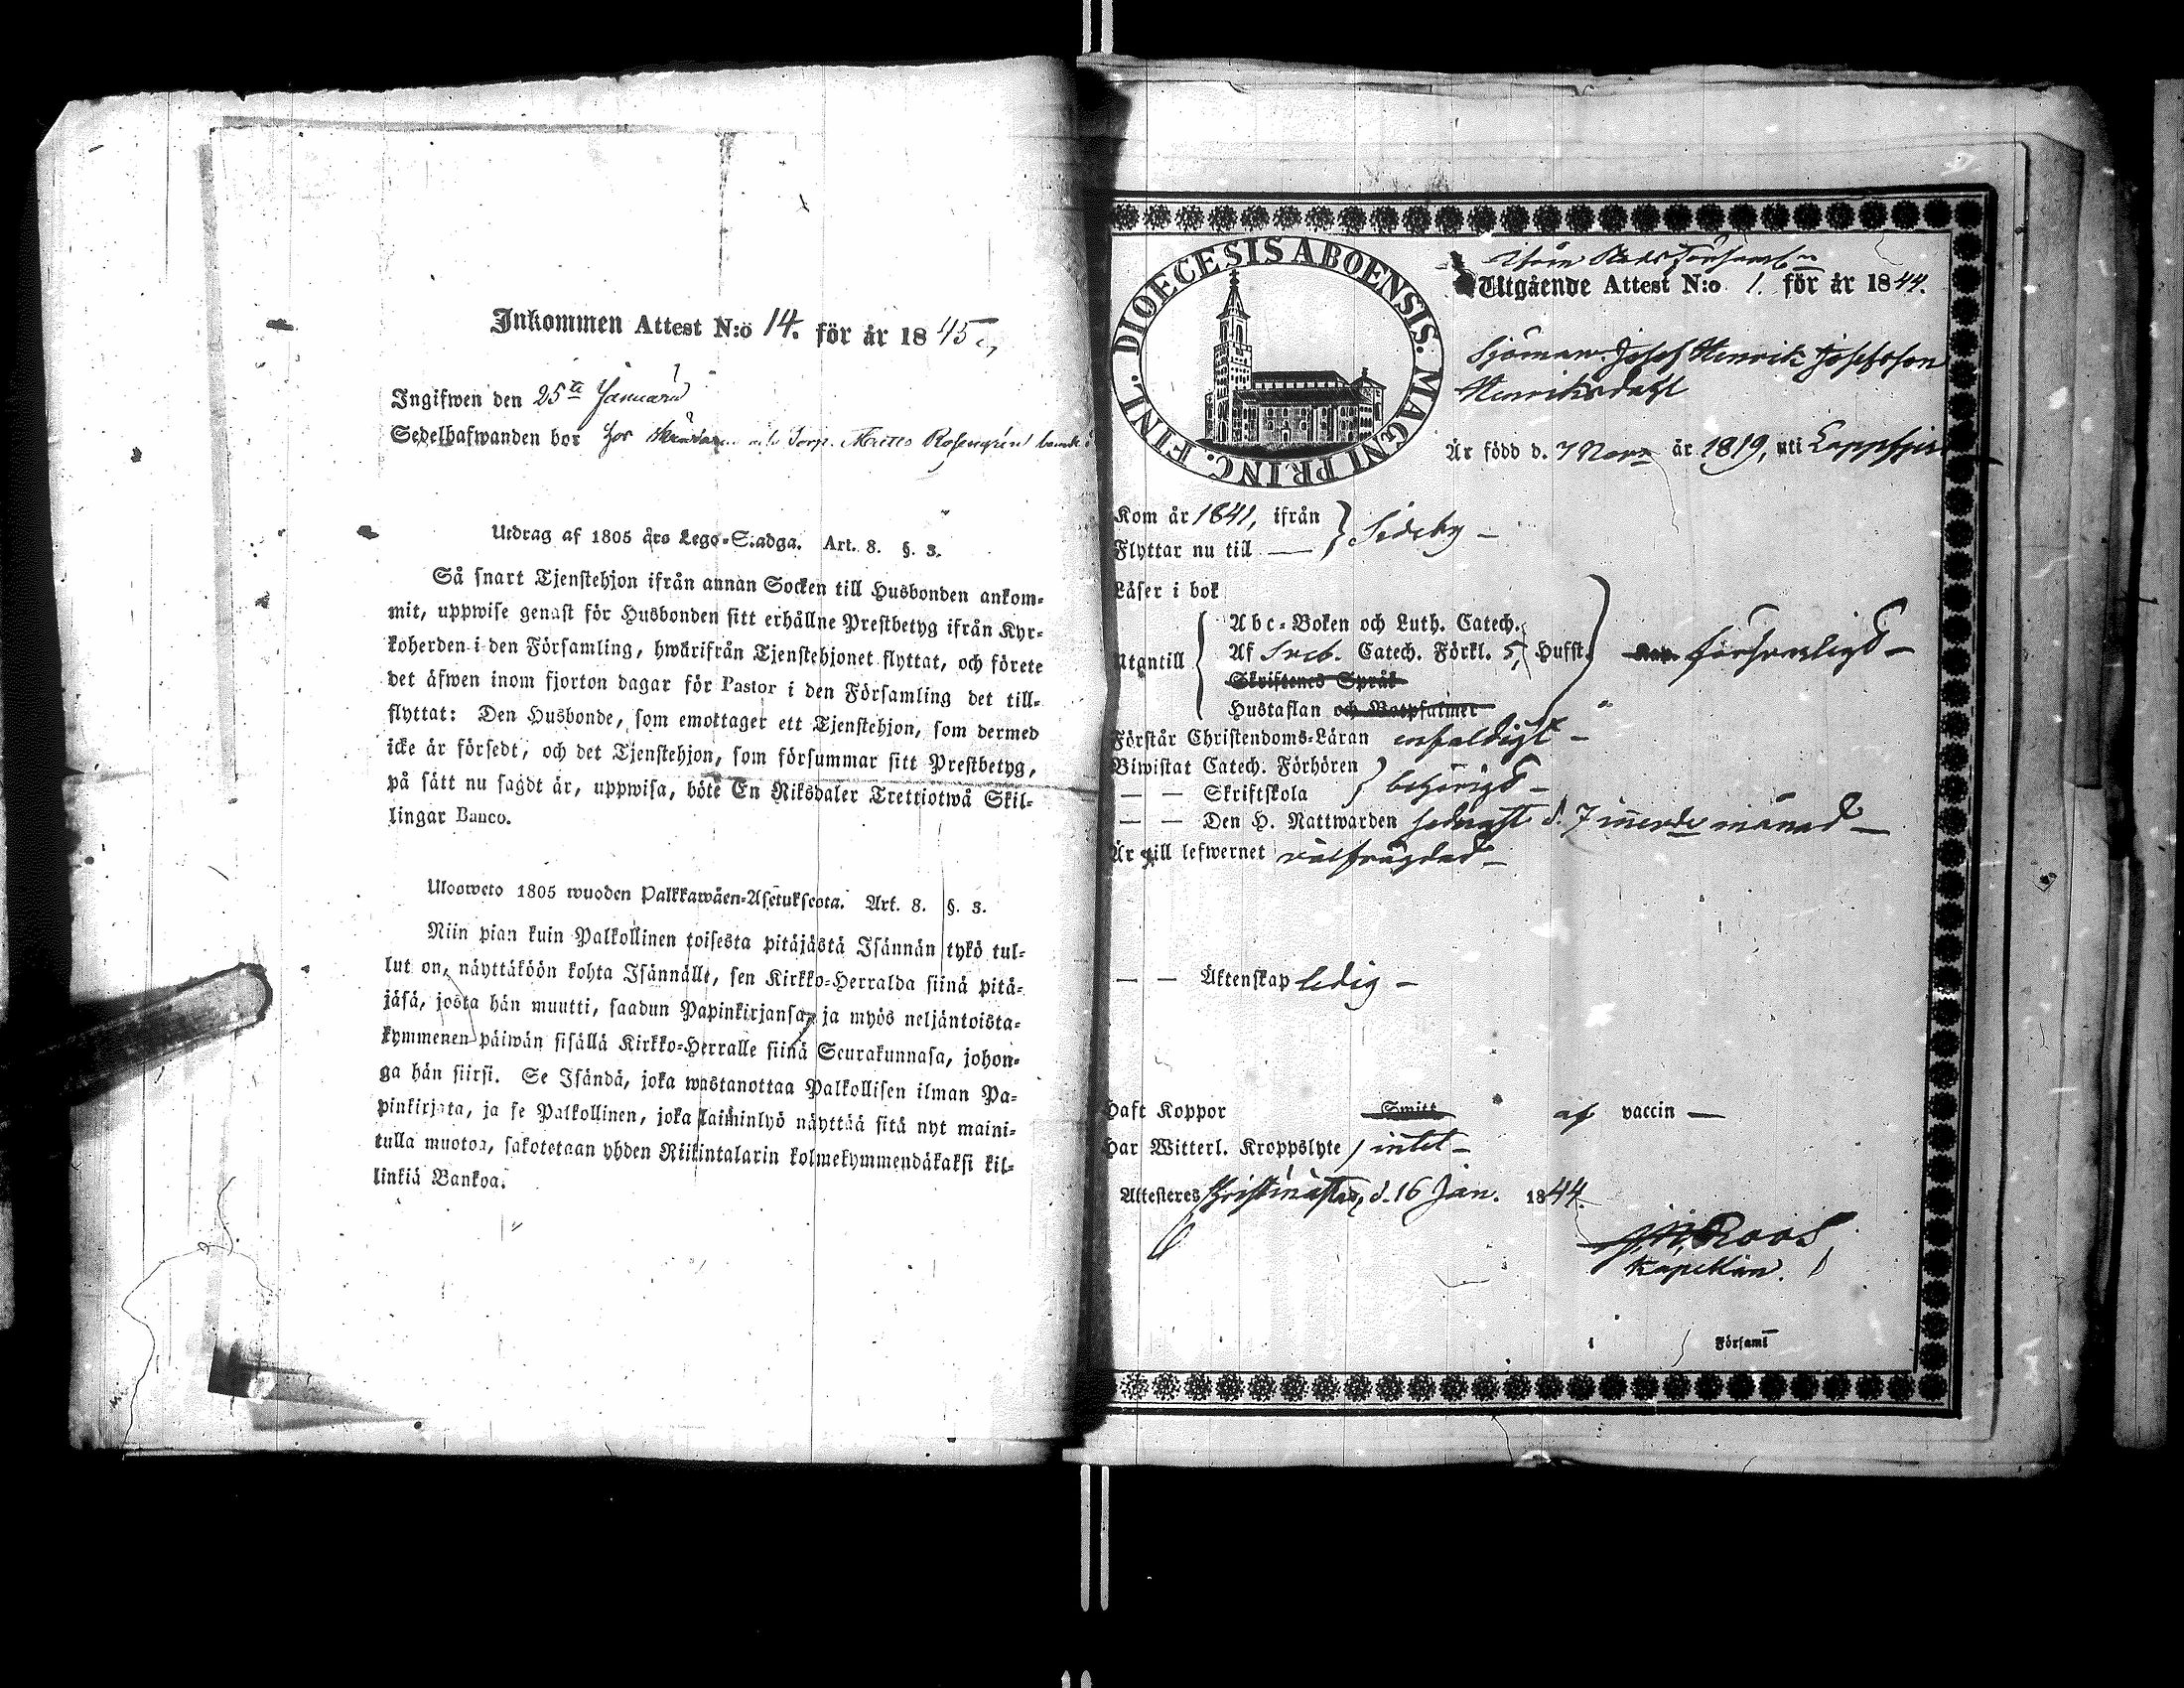 Inkommen Attest N:o 14. för år 1845
Ingifwen den 25te Januarii
Sedelhafwanden bor hos Torp. Matts Rosengren
Utdrag af 1805 års Lego-Stadga. Art. 8. §. 3.
Så snart Tjenstehjon ifrån annan Socken till Husbonden ankom-
mit, uppwise genast för Husbonden sitt erhållne Prestbetyg ifrån Kyr-
koherden i den Församling, hwarifrån Tjenstehjonet flyttat, och förete
det äfwen inom fjorton dagar för Pastor i den Församling det till-
flyttat: Den Husbonde, som emottager ett Tjenstehjon, som dermed
icke är försedt, och det Tjenstehjon, som försummar sitt Prestbetyg,
på sätt nu sagdt är, uppwisa, böte En Riksdaler Trettiotwå Skil-
lingar Banco.
Uloosweto 1805 wuoden Palkkawäen-Asetuksesta. Art. 8. §. 3.
Niin pian kuin Palkollinen toisesta pitäjästä Isännän tykö tul-
lut on, näyttäköön kohta Isännälle, sen Kirkko-Herralda siinä pitä-
jäsä, josta hän muutti, saadun Papinkirjansa, ja myös neljäntoista-
kymmenen päiwän sisällä Kirkko-Herralle siinä Seurakunnasa, johon-
ga hän siirsi. Se Isändä, joka wastanottaa Palkollisen ilman Pa-
pinkirjata, ja se Palkollinen, joka laiminlyö näyttää sitä nyt maini-
tulla muotoa, sakotetaan yhden Riikintalarin kolmekymmendäkaksi kil-
linkiä Bankoa.
DIOECESIS ABOENSIS. MAGNI PRINC. FINL.
Ifrån Stads Församl:n
Utgående Attest N:o 1. för år 1844.
Sjöman Josef Henrik Josefsson
Henriksdahl
Är född d. 7 Nov. år 1819, uti Lappfjerd
Kom år 1841, ifrån } Sideby —
Flyttar nu till —
Läser i bok
Utantill
Abc-Boken och Luth. Catech.
Af Sveb. Catech. Förkl. 5, Hufst. försvarligt —
Skriftenes Språk
Hustaflan och Botpsalmer
Förstår Christendoms-Läran enfaldigt —
Biwistat Catech. Förhören } behörigt —
— — Skriftskola
— — Den H. Nattwarden sednast d. 7 månad —
Är till lefwernet välfrägdad —
— — Äktenskap ledig —
Haft Koppor Smitt af vaccin —
Har Witterl. Kroppslyte intet —
Attesteres Kristinæstad, d. 16 Jan. 1844.
Roos
Kapellan.
i Församl